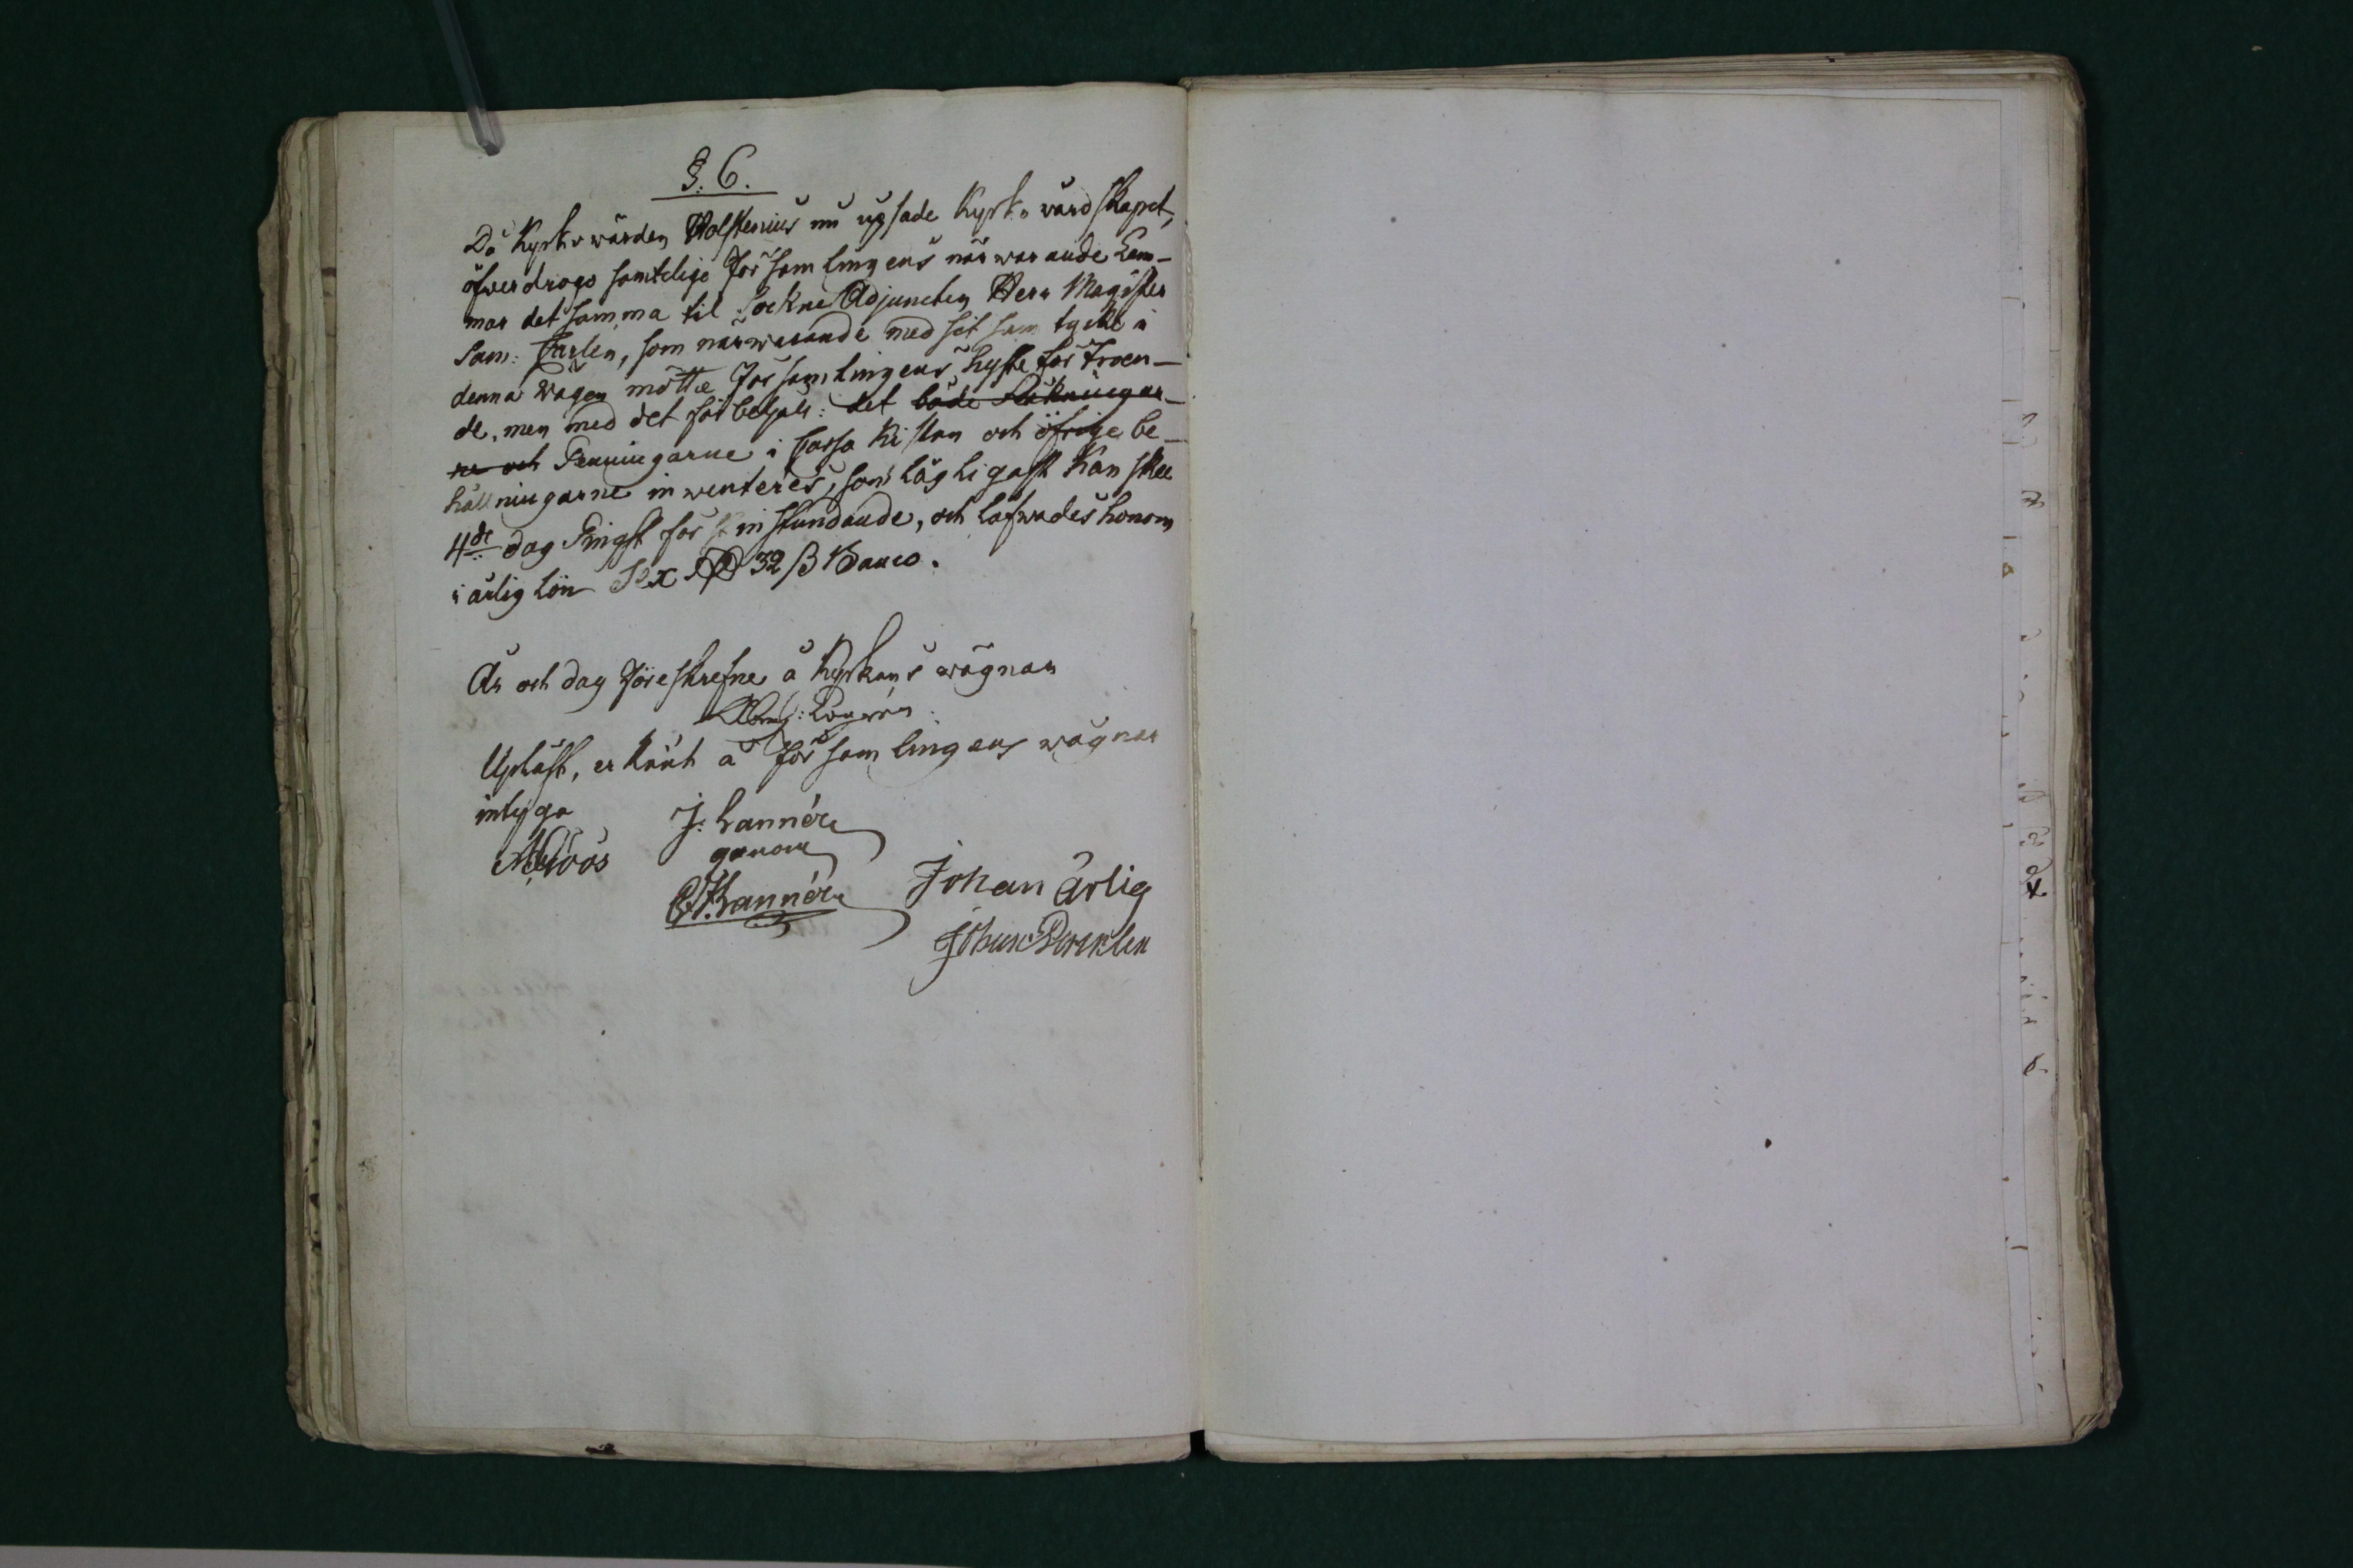 §. 6.
Då Kyrkowärden Holstenius nu upsade Kyrkowärdskapet,
öfverdrogo samtelige Församlingens närwarande Lem-
mar det samma til Sockne Adjuncten Herr Magister
Sam: Carlen, som närwarande med sit samtycke i
denna wägen mötte Församlingens hysta förtroen-
de, men med det förbehåll: det både Räkningar-
ne och Penningarne i Cassa Kistan och öfrige be-
hållningarne inwenteres, som lägligast kan skee
4de dag Pingst förstinstundande, och lofwades honom
i årlig lön Sex Rd 32 ß Banco.
År och dag föreskrefne å Kyrkans wägnar
Upläst, erkänt å församlingens wägnar
intyga J: Lannér
genom
Johan Ärlig
Lannér
Johan